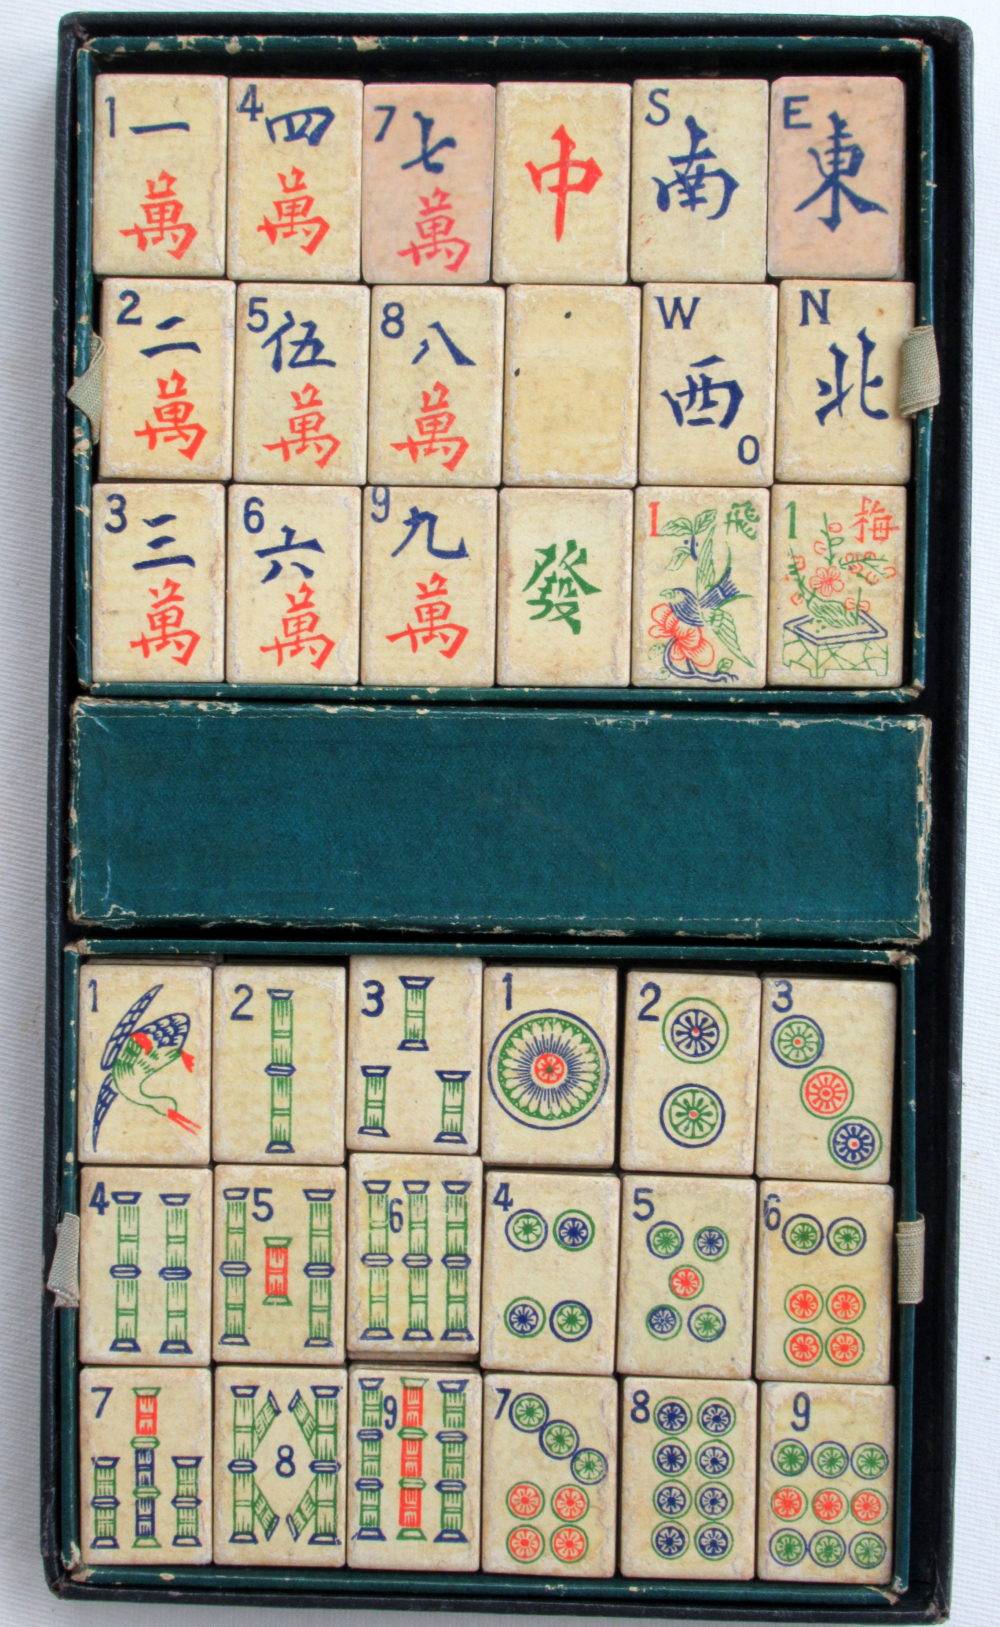 1 一 萬
4 四 萬
7 七 萬
中
S 南
E 東
2 二 萬
5 伍 萬
8 八 萬
W 西 O
N 北
3 三 萬
6 六 萬
9 九 萬
發
1 飛
1 梅
1
2
3
1
2
3
4
5
6
4
5
6
7
8
9
7
8
9